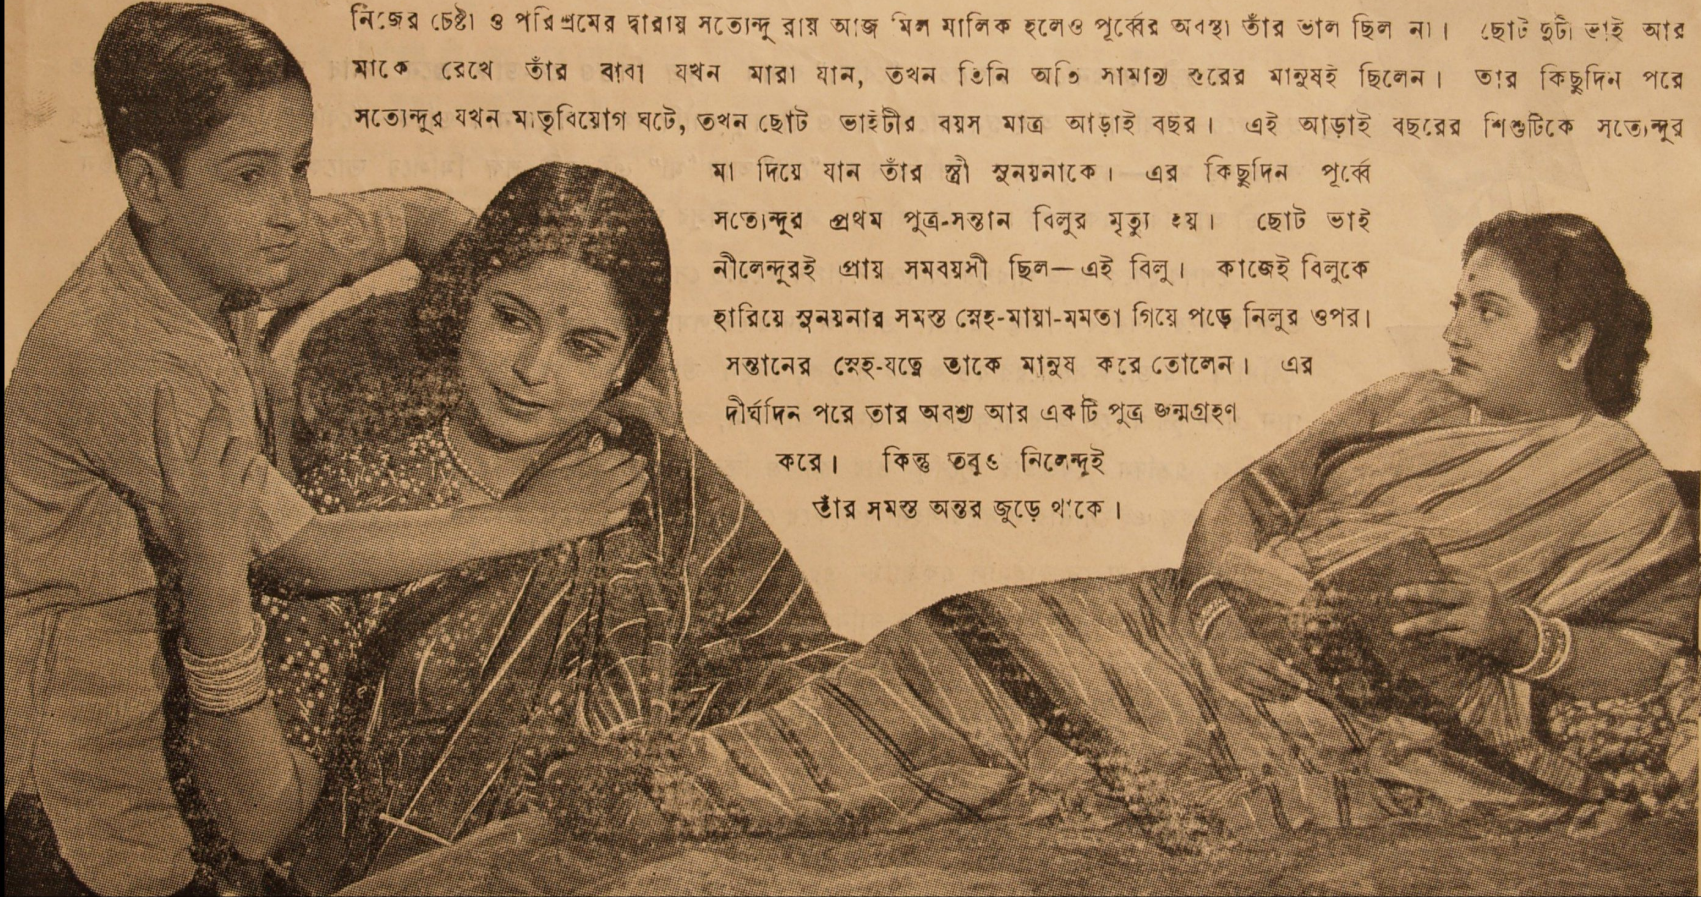 নিজের চেষ্টা ও পরিশ্রমের দ্বারায় সত্যেন্দু রায় আজ মিল মালিক হলেও পূর্ব্বের অবস্থা তাঁর ভাল ছিল না। ছোট দুটী ভাই আর
মাকে রেখে তাঁর বাবা যখন মারা যান, তখন তিনি অতি সামান্য স্তরের মানুষই ছিলেন। তার কিছুদিন পরে
সত্যেন্দুর যখন মাতৃবিয়োগ ঘটে, তখন ছোট ভাইটীর বয়স মাত্র আড়াই বছর। এই আড়াই বছরের শিশুটিকে সত্যেন্দুর
মা দিয়ে যান তাঁর স্ত্রী সুনয়নাকে। এর কিছুদিন পূর্ব্বে
সত্যেন্দুর প্রথম পুত্র-সন্তান বিলুর মৃত্যু হয়। ছোট ভাই
নীলেন্দুরই প্রায় সমবয়সী ছিল—এই বিলু। কাজেই বিলুকে
হারিয়ে সুনয়নার সমস্ত স্নেহ-মায়া-মমতা গিয়ে পড়ে নিলুর ওপর।
সন্তানের স্নেহ-যত্নে তাকে মানুষ করে তোলেন। এর
দীর্ঘদিন পরে তার অবশ্য আর একটি পুত্র জন্মগ্রহণ
করে। কিন্তু তবুও নিলেন্দুই
তাঁর সমস্ত অন্তর জুড়ে থাকে।